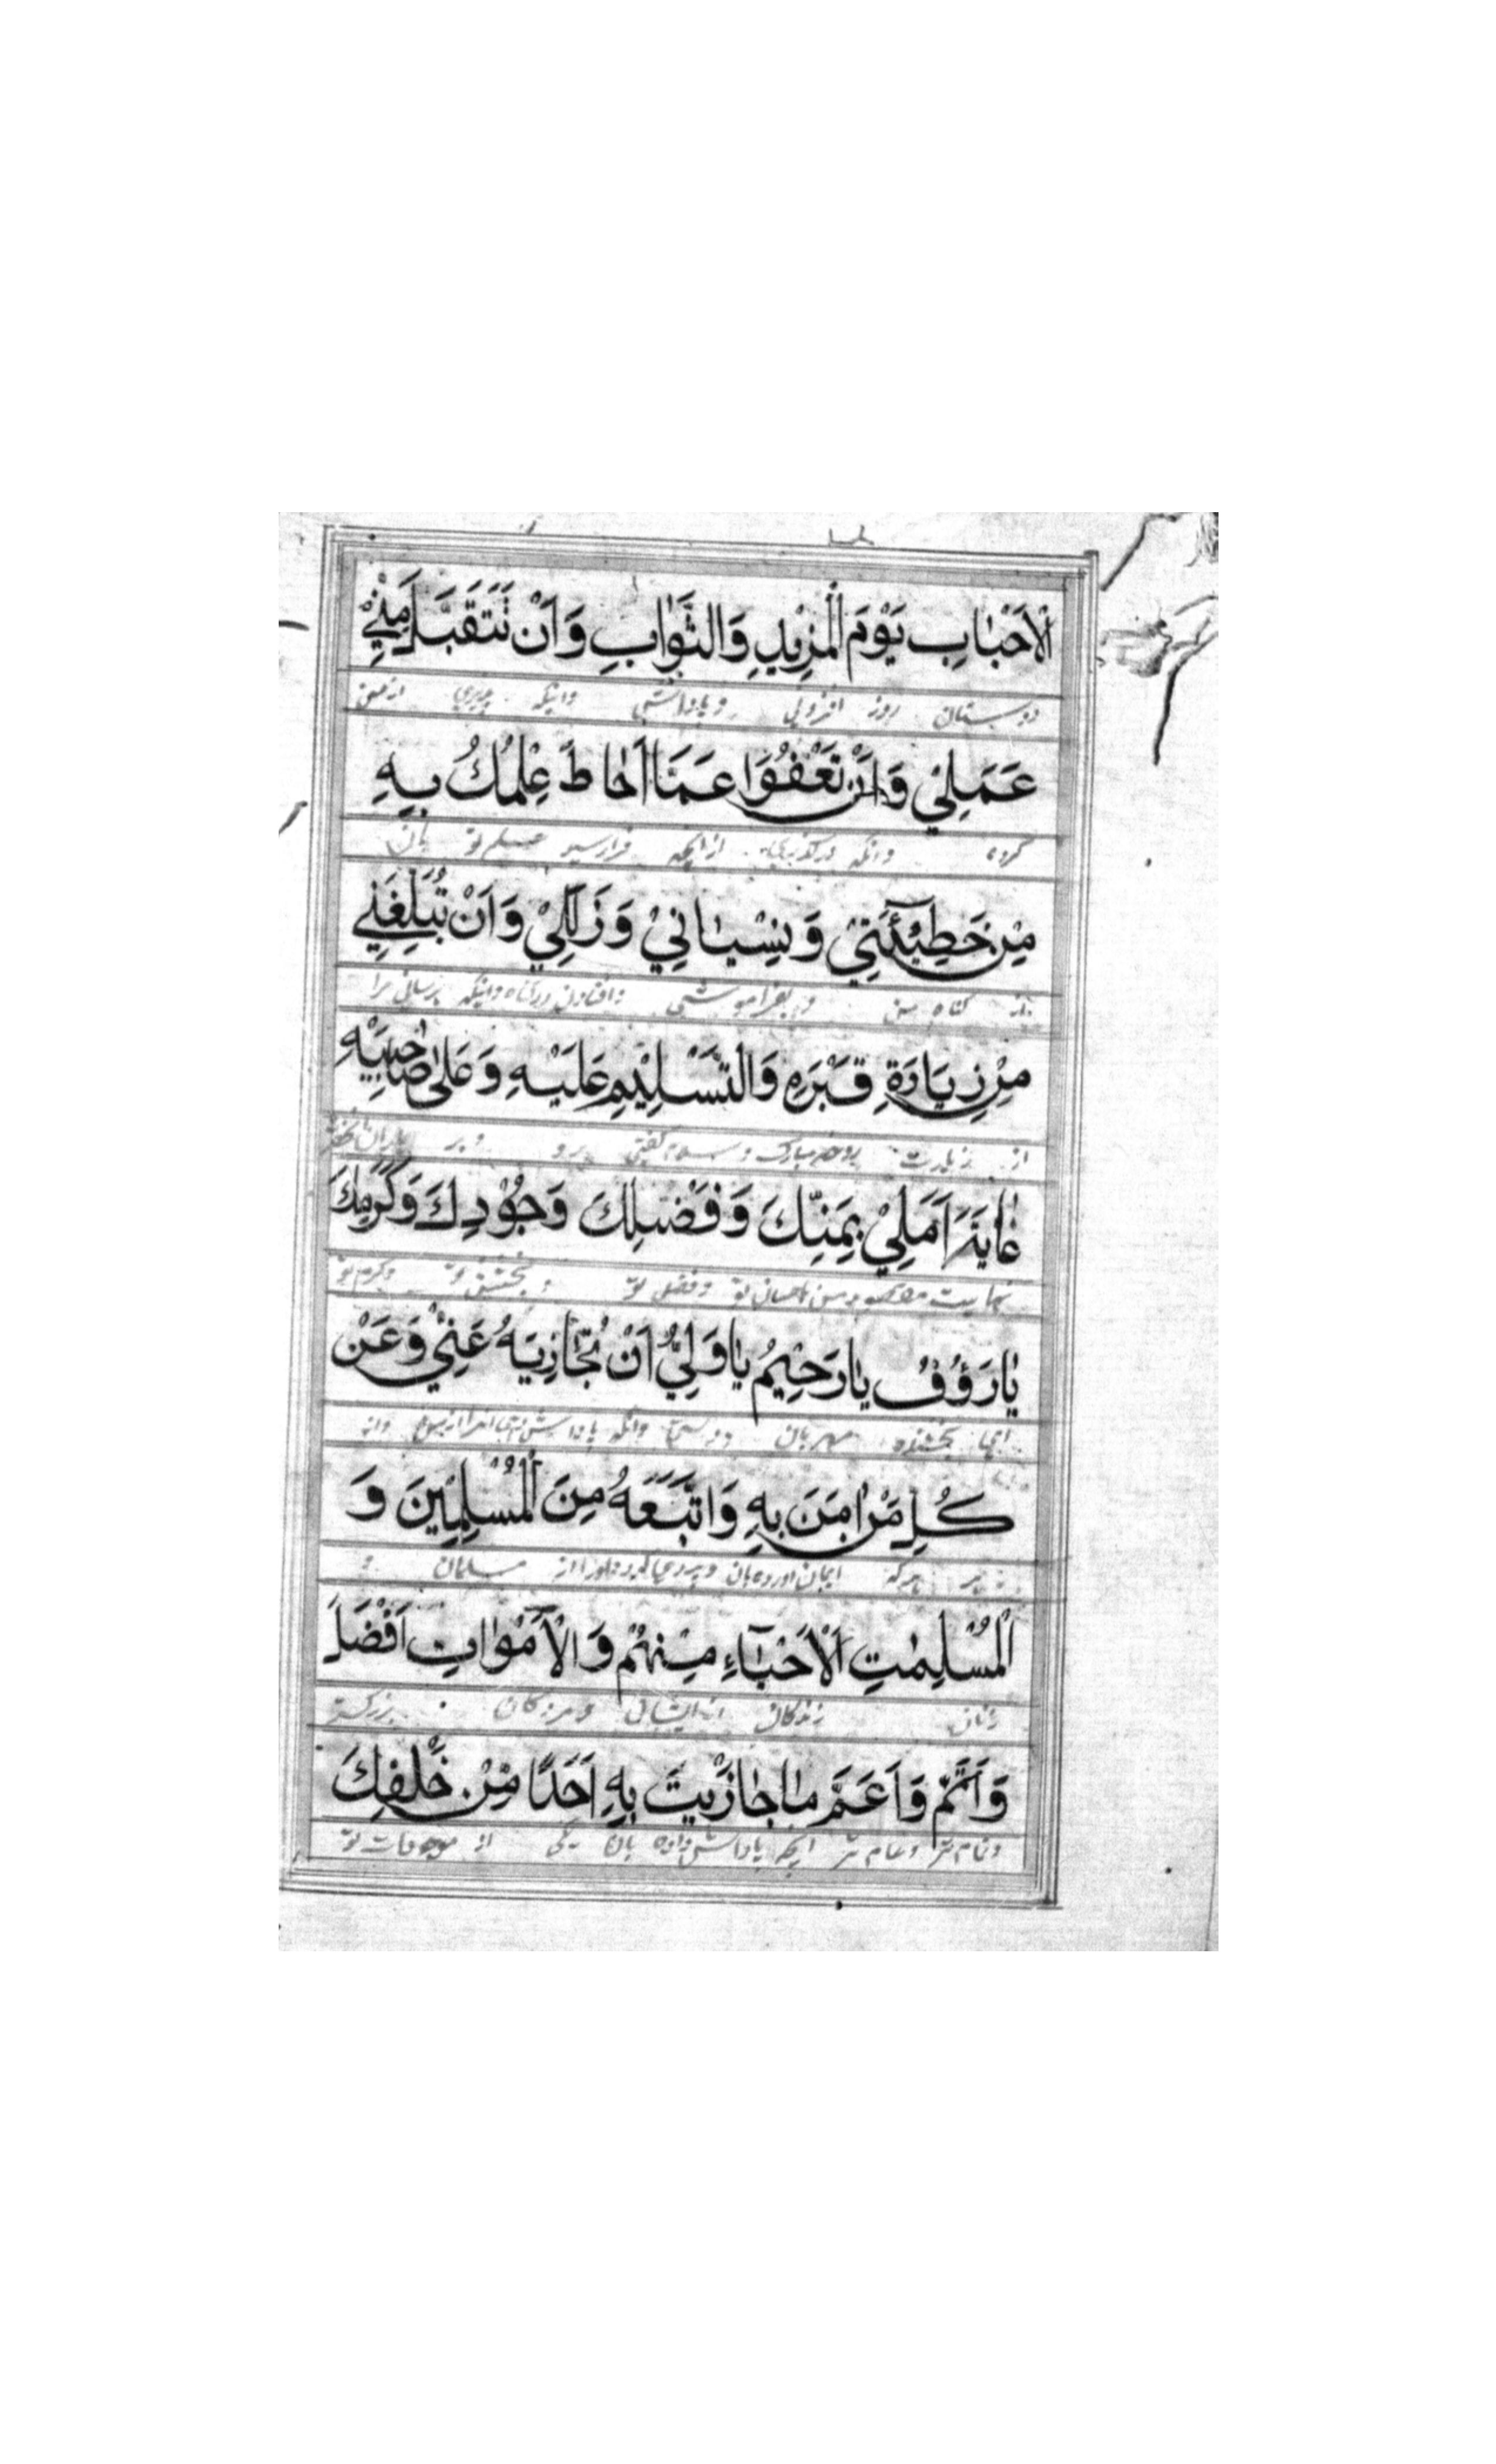 الْاَحْبٰابِ يَوْمَ الْمَزِيْدِ وَالثَّوٰابِ وَاَنْ تَتَقَبَّلَ مِنّيْ
دوستان روز افزونی و پاداشتی وانکه از من
عَمَلِيْ وَاَنْ تَعْفُوَا عَمَّا اَحٰاطَ عِلْمُكَ بِهِ
کرده وانکه درگذری از انچه فرا رسید علم تو بان
مِنْ خَطِيْئَتِيْ وَنِسْيٰانِيْ وَزَلَلِيْ وَاَنْ تُبَلِّغَنِيْ
از گناه من و بفراموشی وافتادن در گناه وانکه برسانی مرا
مِنْ زِيَارَةِ قَبْرِهِ وَالتَّسْلِيْمِ عَلَيْهِ وَعَلىٰ صٰاحِبَيْهِ
از زیارت روضه مبارک و سلام گفتن برو و بر
غٰايَةَ اَمَلِيْ بِمَنِّكَ وَفَضْلِكَ وَجُوْدِكَ وَكَرَمِكَ
نهایت من باحسان تو وفضل تو و بخشش تو وکرم تو
يٰا رَؤُفُ يٰا رَحِيْمُ يٰا وَلِيُّ اَنْ تُجٰازِيَهُ عَنِّيْ وَعَنْ
ای بخشنده مهربان وانکه پاداش دهی انرا از من واز
كُلِّ مَنْ اٰمَنَ بِهِ وَاتَّبَعَهُ مِنَ الْمُسْلِمِيْنَ وَ
هر که ایمان اورده بان و پیروی کرده اورا از مسلمان و
الْمُسْلِمٰتِ اَلْاَحْيٰآءِ مِنْهُمْ وَالْاَمْوٰاتِ اَفْضَلَ
زنان زندگان از ایشان و مردگان بزرگتر
وَاَتَمَّ وَاَعَمَّ مٰا جٰازَيْتَ بِهِ اَحَدًا مِنْ خَلْقِكَ
وتمام تر وعام تر انچه پاداش داده بان یکی از مخلوقات تو